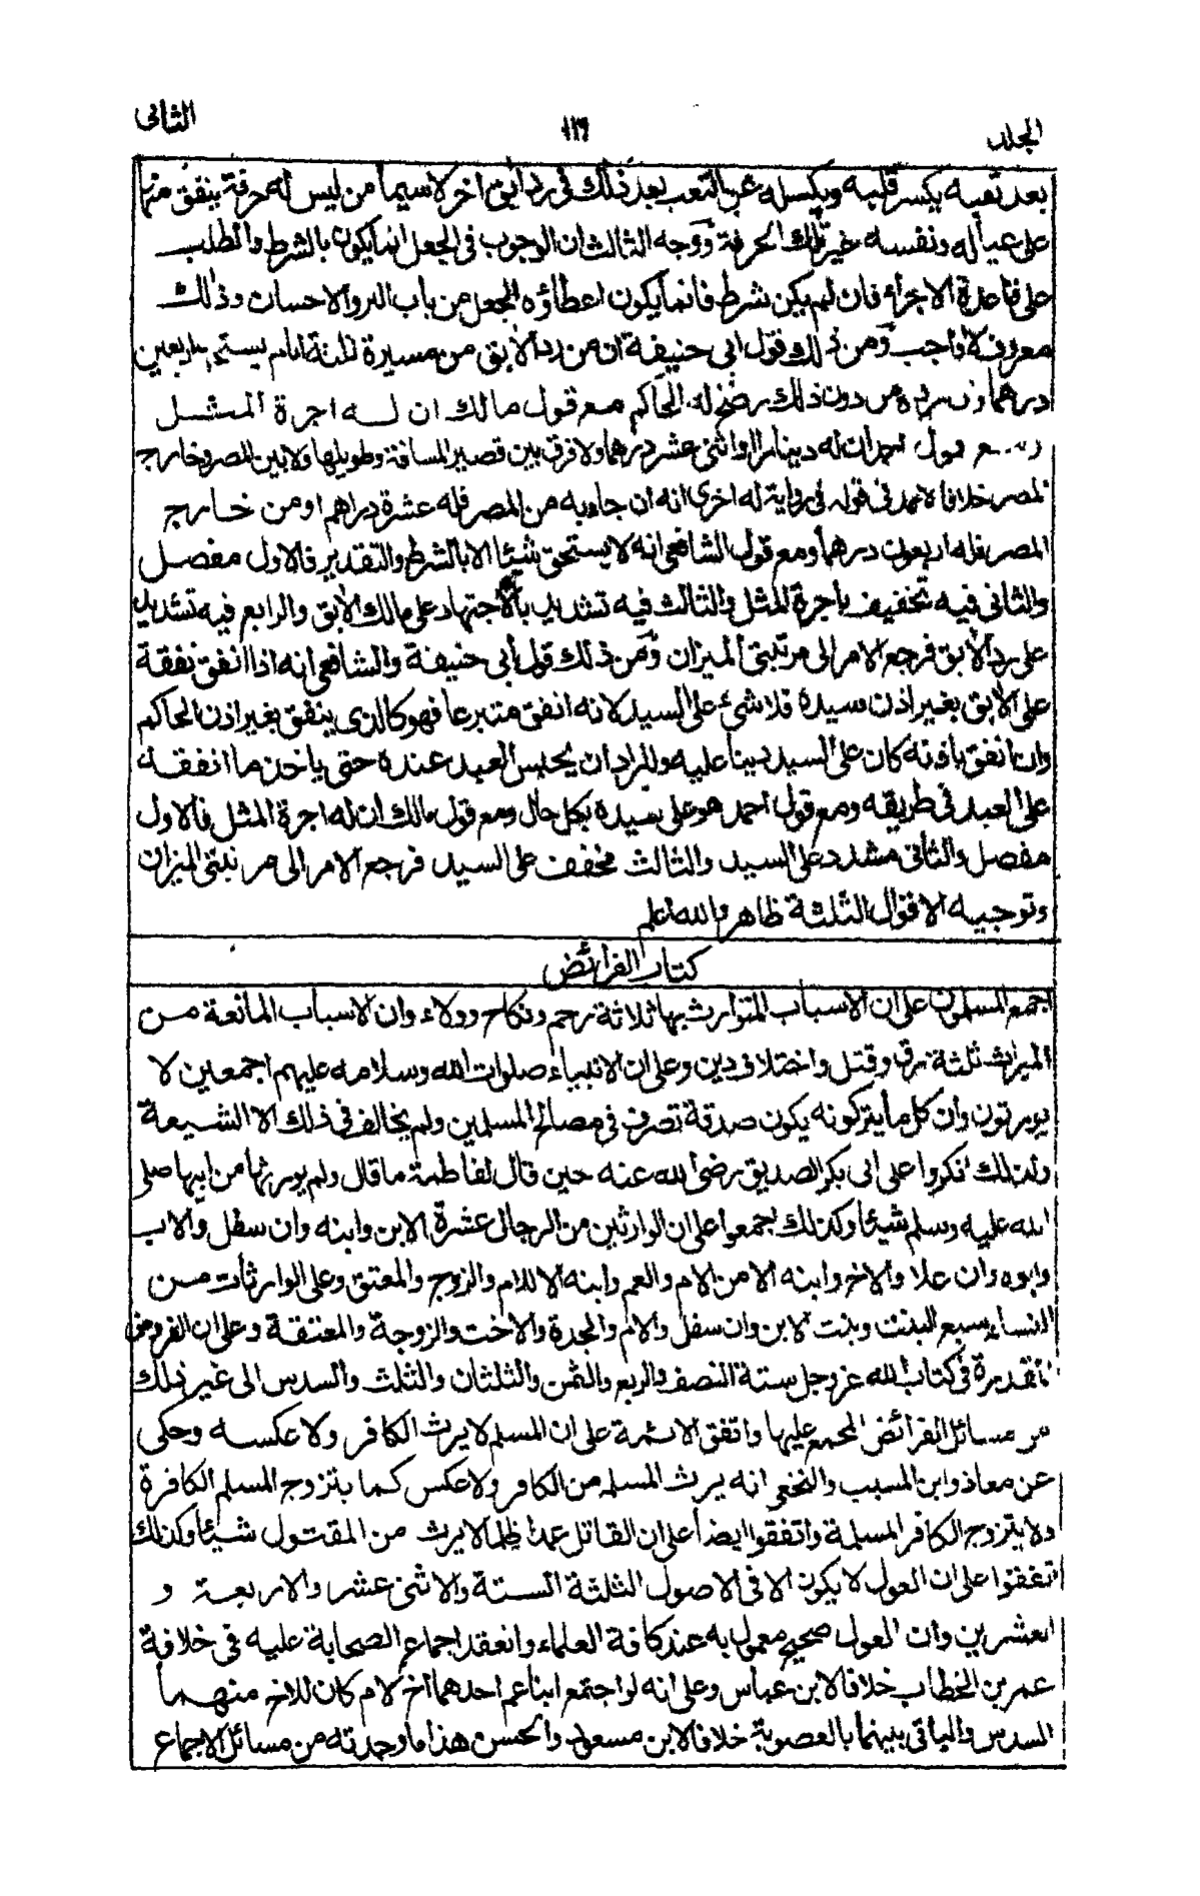 المجلد
١١٦
الثانى
بعد تعبه يكسر قلبه ويكسله عن التعب بعد ذلك فى رد ابق اخر لا سيما من ليس له حرفة ينفق منها
على عياله ونفسه غير تلك الحرفة ووجه الثالث ان الوجوب فى الجعل انما يكون بالشرط والطلب
على قاعدة الاجراء فان لم يكن شرط فانما يكون اعطاؤه الجعل من باب البر والاحسان وذلك
معروف لا واجب ومن ذلك قول ابى حنيفة ان من رد الابق من مسيرة ثلثة ايام يستحق اربعين
درهما وان رده من دون ذلك يرضخ له الحاكم مع قول مالك ان له اجرة المثل
ومع قول احمد ان له دينارا او اثنى عشر درهما ولا فرق بين قصير المسافة وطويلها ولا بين المصر وخارج
المصر خلافا لاحمد فى قوله فى رواية له اخرى انه ان جاء به من المصر فله عشرة دراهم او من خارج
المصر فله اربعون درهما ومع قول الشافعى انه لا يستحق شيئا الا بالشرط والتقدير فالاول مفصل
والثانى فيه تخفيف باجرة المثل والثالث فيه تشديد بالاجتهاد على مالك الابق والرابع فيه تشديد
على رد الابق فرجع الامر الى مرتبتى الميزان ومن ذلك قول ابى حنيفة والشافعى انه اذا انفق نفقة
على الابق بغير اذن سيده فلا شىء على السيد لانه انفق متبرعا فهو كالذى ينفق بغير اذن الحاكم
وان انفق باذنه كان على السيد دينا عليه والمراد ان يحبس العبد عنده حتى ياخذ ما انفقه
على العبد فى طريقه ومع قول احمد هو على سيده بكل حال ومع قول مالك ان له اجرة المثل فالاول
مفصل والثانى مشدد على السيد والثالث مخفف على السيد فرجع الامر الى مرتبتى الميزان
وتوجيه الاقوال الثلثة ظاهر والله اعلم
كتاب الفرائض
اجمع المسلمون على ان الاسباب المتوارث بها ثلاثة رحم ونكاح وولاء وان الاسباب المانعة من
الميراث ثلثة رق وقتل واختلاف دين وعلى ان الانبياء صلوات الله وسلامه عليهم اجمعين لا
يورثون وان كل ما يتركونه يكون صدقة تصرف فى مصالح المسلمين ولم يخالف فى ذلك الا الشيعة
ولذلك انكروا على ابى بكر الصديق رضى الله عنه حين قال لفاطمة ما قال ولم يورثها من ابيها صلى
الله عليه وسلم شيئا وكذلك اجمعوا على ان الوارثين من الرجال عشرة الابن وابنه وان سفل والاب
وابوه وان علا والاخ وابنه الا من الام والعم وابنه الا للام والزوج والمعتق وعلى الوارثات من
النساء سبع البنت وبنت الابن وان سفل والام والجدة والاخت والزوجة والمعتقة وعلى ان الفروض
المقدرة فى كتاب الله عز وجل ستة النصف والربع والثمن والثلثان والثلث والسدس الى غير ذلك
من مسائل الفرائض المجمع عليها واتفق الائمة على ان المسلم لا يرث الكافر ولا عكسه وحكى
عن معاذ وابن المسيب والنخعى انه يرث المسلم من الكافر ولا عكس كما يتزوج المسلم الكافرة
ولا يتزوج الكافر المسلمة واتفقوا ايضا على ان القاتل عمدا ظلما لا يرث من المقتول شيئا وكذلك
اتفقوا على ان العول لا يكون الا فى الاصول الثلثة الستة والاثنى عشر والاربعة و
العشرين وان العول صحيح معمول به عند كافة العلماء وانعقد اجماع الصحابة عليه فى خلافة
عمر بن الخطاب خلافا لابن عباس وعلى انه لو اجتمع ابنا عم احدهما اخ لام كان للاخ منهما
السدس والباقى بينهما بالعصوبة خلافا لابن مسعود والحسن هذا ما وجدته من مسائل الاجماع